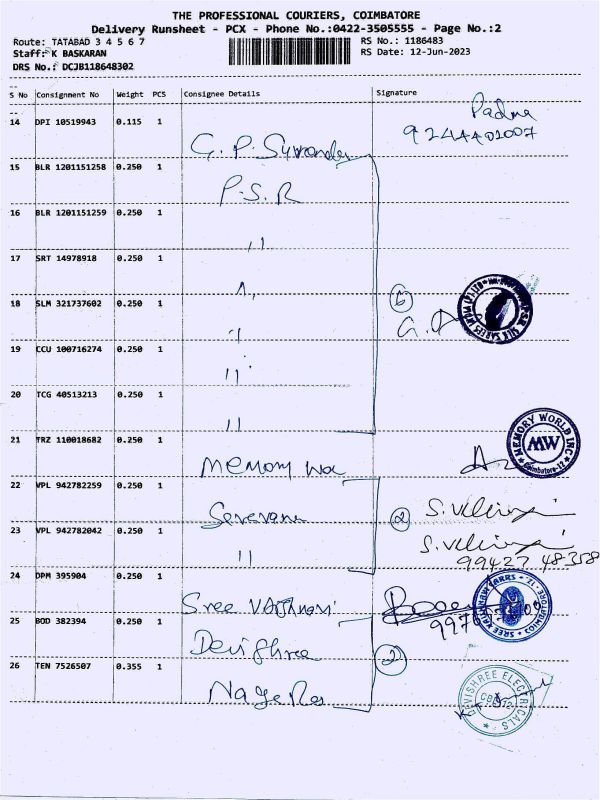 THE PROFESSIONAL COURIERS, COIMBATORE
Delivery Runsheet - PCX - Phone No.:0422-3505555 - Page No.:2
Route: TATABAD 3 4 5 6 7
RS No.: 1186483
Staff: K BASKARAN
RS Date: 12-Jun-2023
DRS No.: DCJB118648302
S No Consignment No Weight PCS Consignee Details Signature
14 DPI 10519943 0.115 1
Padma
G. P.
15 BLR 1201151258 0.250 1
P.S.R
16 BLR 1201151259 0.250 1
"
17 SRT 14978918 0.250 1
18 SLM 321737602 0.250 1
6
19 CCU 100716274 0.250 1
"
20 TCG 40513213 0.250 1
"
21 TRZ 110018682 0.250 1
MEMORY WORLD INC
MW
Coimbatore-12
Memory
22 VPL 942782259 0.250 1
2
23 VPL 942782042 0.250 1
"
99427 48358
24 DPM 395904 0.250 1
Sree
25 BOD 382394 0.250 1
Devishree
2
26 TEN 7526507 0.355 1
DEVISHREE ELECTRICALS
CBE-12